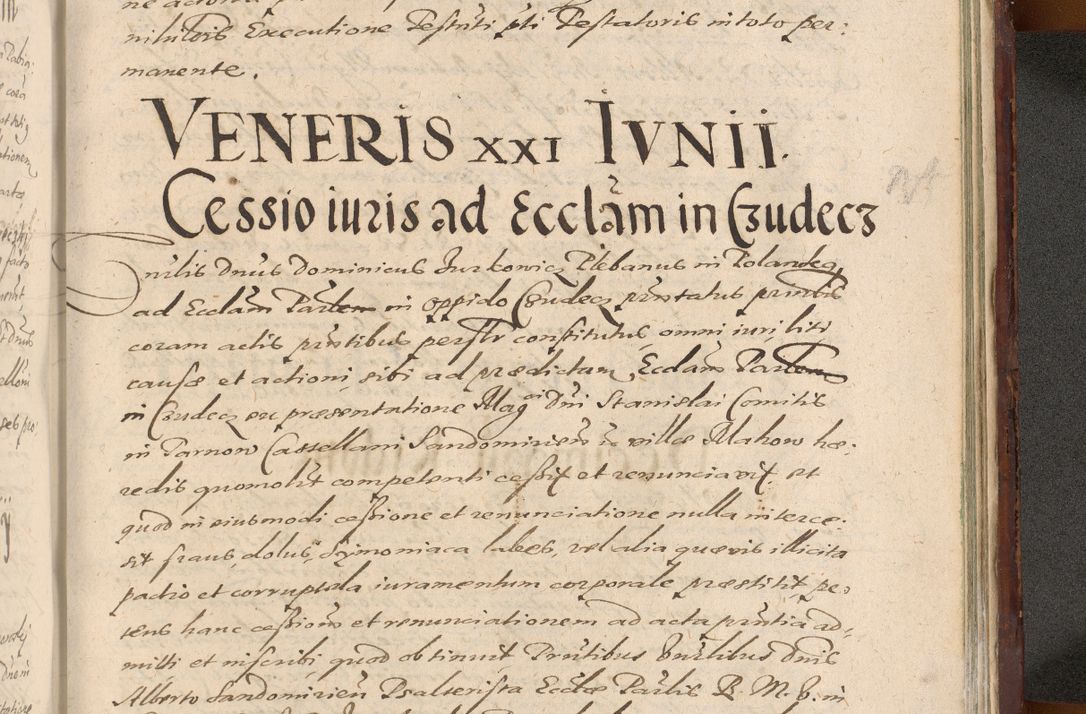 nitutoris Executione Testnti pti Testatoris in toto per:
manente.
VENERIS XXI IVNII.
Cessio iuris ad Ecclam in Czudecz
nrlis Dnus Dominicus Jurkowicz Plebanus in Polandeg
ad Ecclam Parlem in oppido Czudecz pntatus prntbs
coram actis pntibus persolr constitutus, omni iuri, liti
causæ et actioni, sibi ad prædictam, Ecclam Parlem
in Czudecz ex præsentatione Magci Dni Stanislai Comitis
in Tarnow Castellani Sandomirien in villæ Mahow hæ:
redis quomolit competenti cessit et renunciavit. et
quod in eiusmodi cessione et renunciatione nulla interce:
sit fraus, dolus, symoniaca labes, vel alia quævis illicita
pactio et corruptela iuramentum corporale præstitit, pe:
tens hanc cessionem et renunciationem ad acta pntia ad:
mitti et inscribi, quod obtinuit Pntibus Bnrlibus Dnis
Alberto Sandomirien Psalterista Ecclæ Parlis B. M. V. in